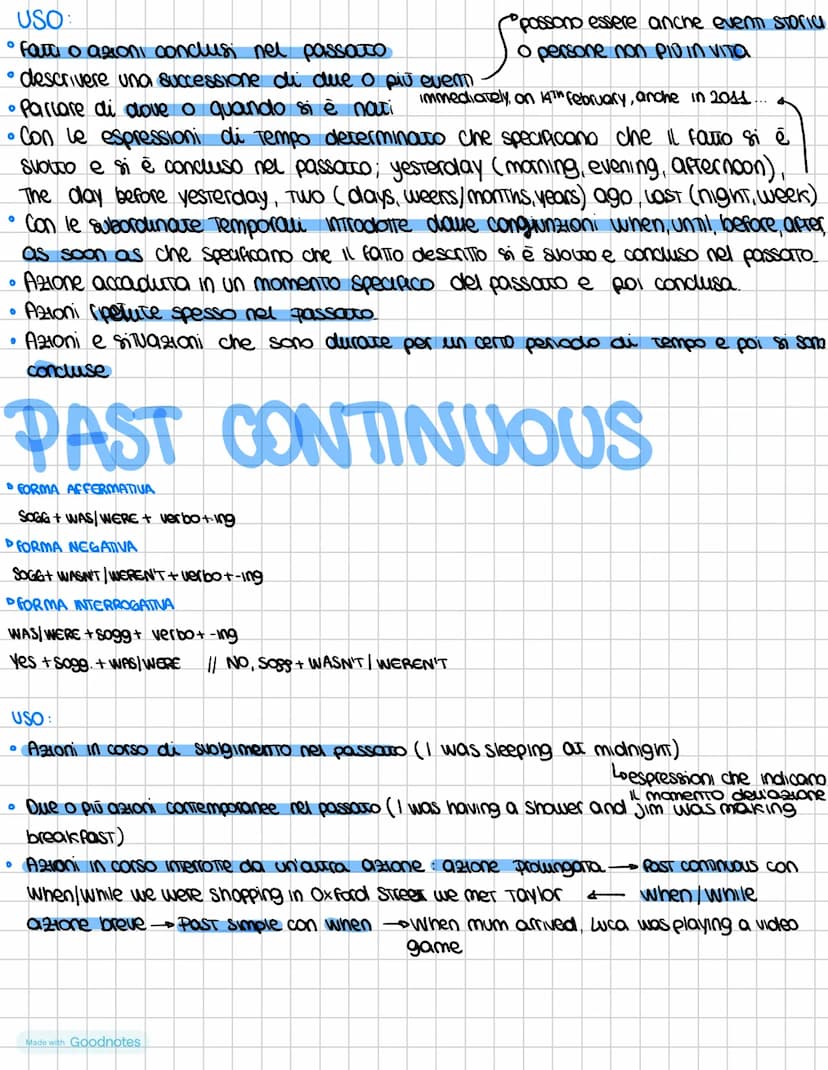 USO:
possono essere anche eventi storici
• Fatti o azioni conclusi nel passato
o persone non più in vita
• descrivere una successione di due o più eventi
• Parlare di dove o quando si è nati
immediately, on 14th february, anche in 2011...
• Con le espressioni di tempo determinato che specificano che il fatto si è
svolto e si è concluso nel passato; yesterday (morning, evening, afternoon),
The day before yesterday, two (days, weers/months, years) ago, last (night, week)
• Con le subordinate temporali introdotte dalle congiunzioni when, until, before, after,
as soon as che specificano che il fatto descritto si è svolto e concluso nel passato.
• Azione accaduta in un momento specifico del passato e poi conclusa.
• Azioni ripetute spesso nel passato
• Azioni e situazioni che sono durate per un certo periodo di tempo e poi si sono
concluse
PAST CONTINUOUS
FORMA AFFERMATIVA
SOGG + WAS/WERE + verbo+-ing
FORMA NEGATIVA
SOGG+ WASN'T/WEREN'T + verbo+-ing
FORMA INTERROGATIVA
WAS/WERE + sogg + verbo+ -ing
Yes + sogg. + WAS/WERE // NO, sogg + WASN'T / WEREN'T
USO:
• Azioni in corso di svolgimento nel passato (I was sleeping at midnight)
↳ espressioni che indicano
il momento dell'azione
• Due o più azioni contemporanee nel passato (I was having a shower and Jim was making
breakfast)
• Azioni in corso interrotte da un'altra azione: azione prolungata → Past continuous con
When/while we were shopping in Oxford Street we met Taylor ← when/while
azione breve → Past simple con when → When mum arrived, Luca was playing a video
game
Made with Goodnotes